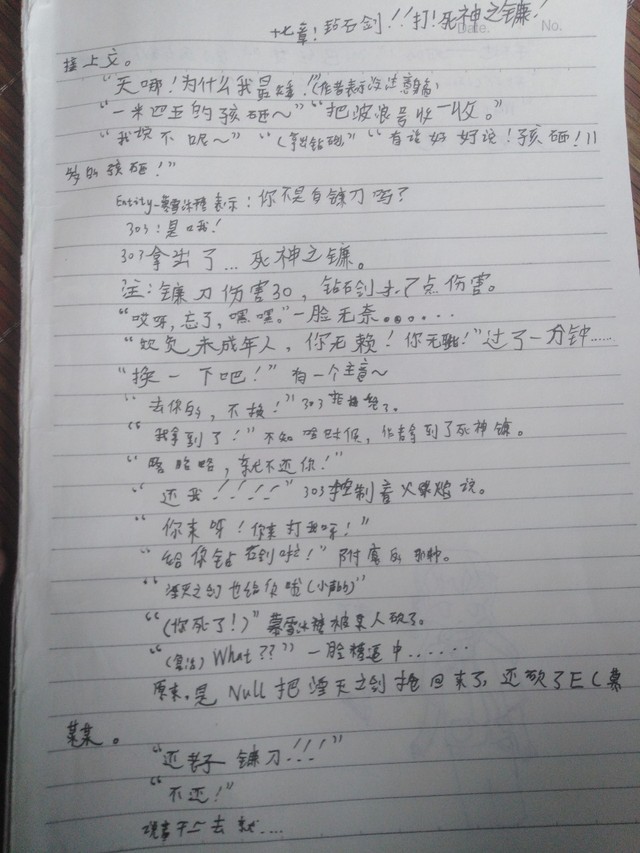 十七章！钻石剑！！打！死神之镰！
Date.
No.
接上文。
“天哪！为什么我最矮！”（作者表示没法意淫）
“一米四五的孩砸～”“把波浪号收一收。”
“我说不呢～”“（拿出钻剑）”“有话好好说！孩砸！11
岁的孩砸！”
Entity-慕雪冰 表示：你不是有镰刀吗？
303：是哦！
303拿出了…死神之镰。
注：镰刀伤害30，钻石剑才7点伤害。
“哎呀，忘了，嘿嘿。”一脸无奈。。。。。。
“欺负未成年人，你无赖！你无耻！”过了一分钟……
“换一下吧！”有一个主意～
“去你的，不换！”303 拒绝了。
“我拿到了！”不知啥时候，作者拿到了死神镰。
“略略略，就不还你！”
“还我！！！！”303控制着火爆焰说。
“你来呀！你来打我呀！”
“给你钻石剑啦！”附魔的那种。
“湮灭之剑也给你哦（小声bb）”
“（你死了！）”慕雪冰 被某人砍了。
“（复活）What??”一脸懵逼中……
原来，是Null把湮灭之剑抢回来了，还砍了E（慕
某某。
“还老子镰刀！！！”
“不还！”
说着